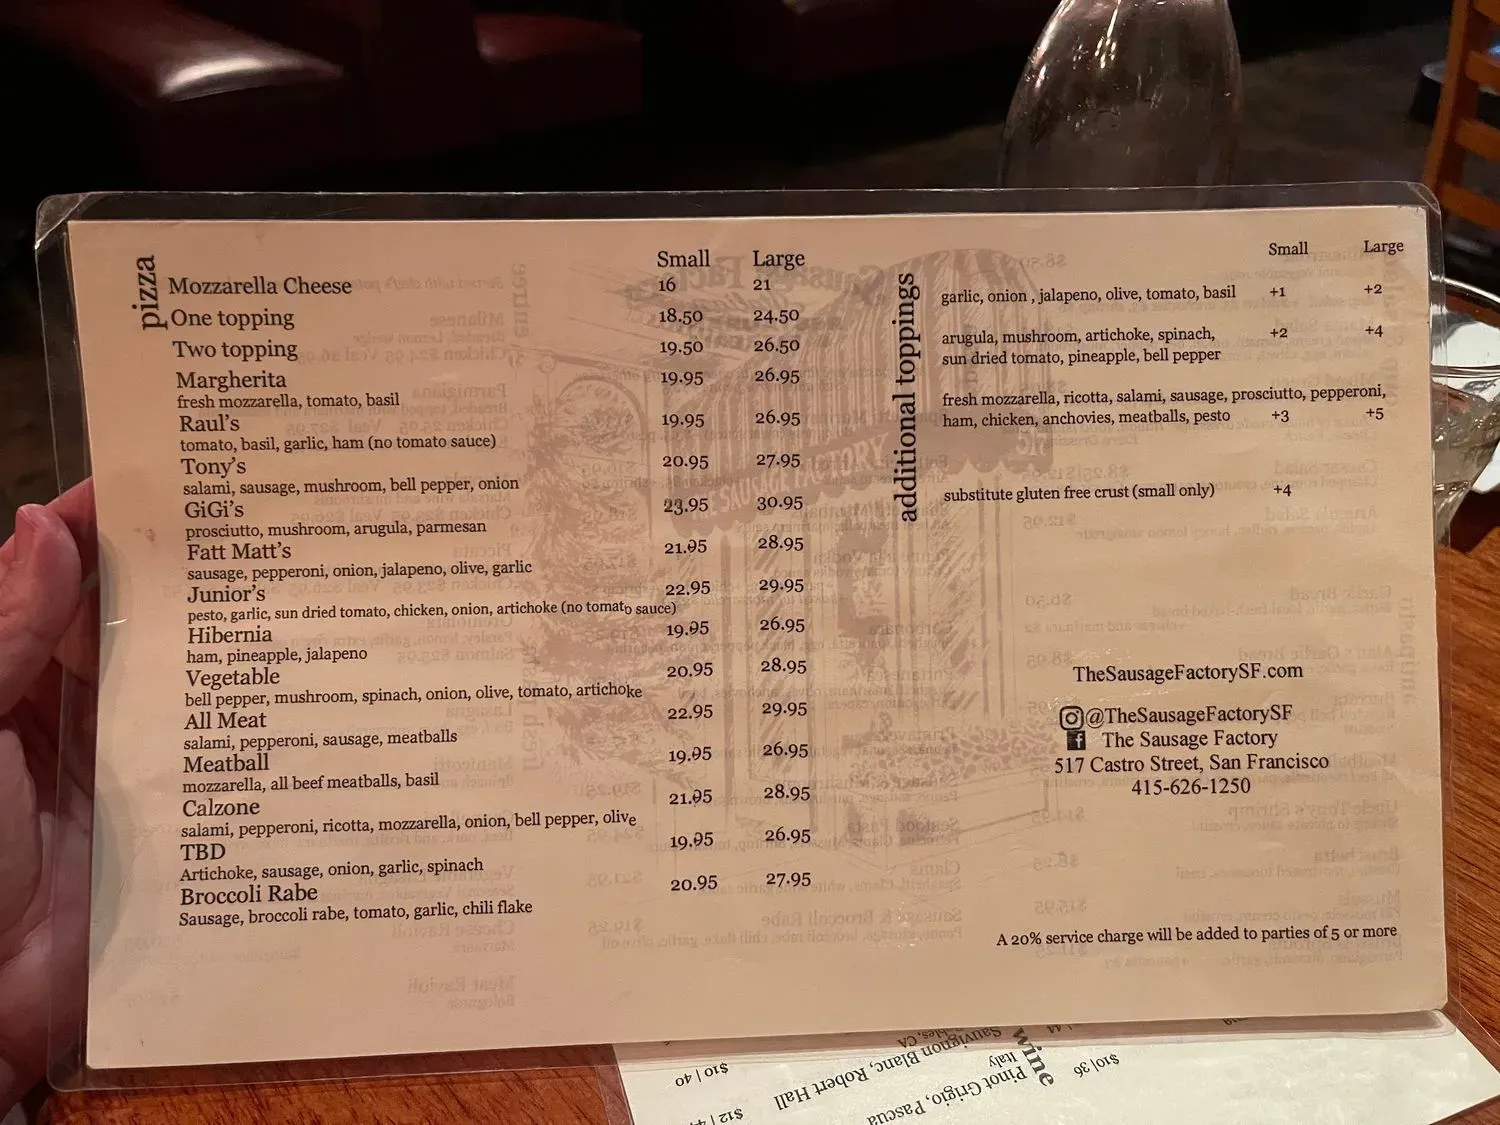 pizza
Small Large
Mozzarella Cheese 16 21
One topping 18.50 24.50
Two topping 19.50 26.50
Margherita 19.95 26.95
fresh mozzarella, tomato, basil
Raul's 19.95 26.95
tomato, basil, garlic, ham (no tomato sauce)
Tony's 20.95 27.95
salami, sausage, mushroom, bell pepper, onion
GiGi's 23.95 30.95
prosciutto, mushroom, arugula, parmesan
Fatt Matt's 21.95 28.95
sausage, pepperoni, onion, jalapeno, olive, garlic
Junior's 22.95 29.95
pesto, garlic, sun dried tomato, chicken, onion, artichoke (no tomato sauce)
Hibernia 19.95 26.95
ham, pineapple, jalapeno
Vegetable 20.95 28.95
bell pepper, mushroom, spinach, onion, olive, tomato, artichoke
All Meat 22.95 29.95
salami, pepperoni, sausage, meatballs
Meatball 19.95 26.95
mozzarella, all beef meatballs, basil
Calzone 21.95 28.95
salami, pepperoni, ricotta, mozzarella, onion, bell pepper, olive
TBD 19.95 26.95
Artichoke, sausage, onion, garlic, spinach
Broccoli Rabe 20.95 27.95
Sausage, broccoli rabe, tomato, garlic, chili flake
additional toppings
Small Large
garlic, onion , jalapeno, olive, tomato, basil +1 +2
arugula, mushroom, artichoke, spinach, +2 +4
sun dried tomato, pineapple, bell pepper
fresh mozzarella, ricotta, salami, sausage, prosciutto, pepperoni,
ham, chicken, anchovies, meatballs, pesto +3 +5
substitute gluten free crust (small only) +4
TheSausageFactorySF.com
@TheSausageFactorySF
The Sausage Factory
517 Castro Street, San Francisco
415-626-1250
A 20% service charge will be added to parties of 5 or more
wine
Pinot Grigio, Pascua $10|36
Italy
Sauvignon Blanc, Robert Hall $10|40
CA
$12